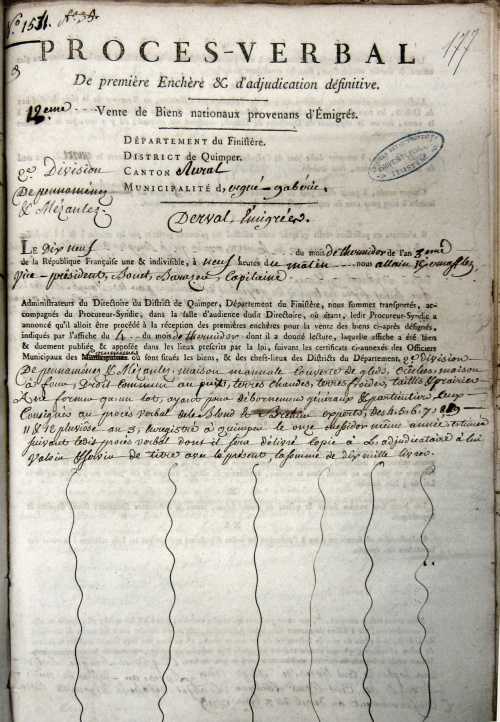 N.º 151. N.º 38.
177
PROCES-VERBAL
De première Enchère & d'adjudication définitive.
12eme Vente de Biens nationaux provenans d'Émigrés.
DÉPARTEMENT du Finistère.
DISTRICT de Quimper.
CANTON Rural
MUNICIPALITÉ d'ergué-gabéric.
2e Division
De pennaménez
& Mézanlez
Derval Émigrée.
LE Dix neuf du mois de thermidor de l'an 3eme
de la République Française une & indivisible, à neuf heures de matin nous allain Kernafflez
Vice-président, Bonet, Capitaine
Administrateurs du Directoire du District de Quimper, Département du Finistère, nous sommes transportés, ac-
compagnés du Procureur-Syndic, dans la salle d'audience dudit Directoire, où étant, ledit Procureur-Syndic a
annoncé qu'il alloit être procédé à la réception des premières enchères pour la vente des biens ci-après désignés,
indiqués par l'affiche du 4 du mois de thermidor dont il a donné lecture, laquelle affiche a été bien
& duement publiée & apposée dans les lieux prescrits par la loi, suivant les certificats ci-annexés des Officiers
Municipaux des Communes où sont situés les biens, & des chefs-lieux des Districts du Département, 2e Division
De pennaménez & Mézanlez, maison manuale couverte de gleds, crêches, maison
à four, Droit commun au puits, terres chaudes, terres froides, taillis & prairies
Ane former qu'un lot, ayant pour débornemens généraux & particuliers, ceux
Consignés au procès verbal de le Blond & experts, des 4. 5. 6. 7. 8.
11 & 12 pluviose an 3, enregistré à quimper le onze messidor même année
suivant lequel procès verbal dont il sera délivré copie à L'adjudicataire à lui
Valoir & servir de titre avec le présent, la somme de dix mille livres.